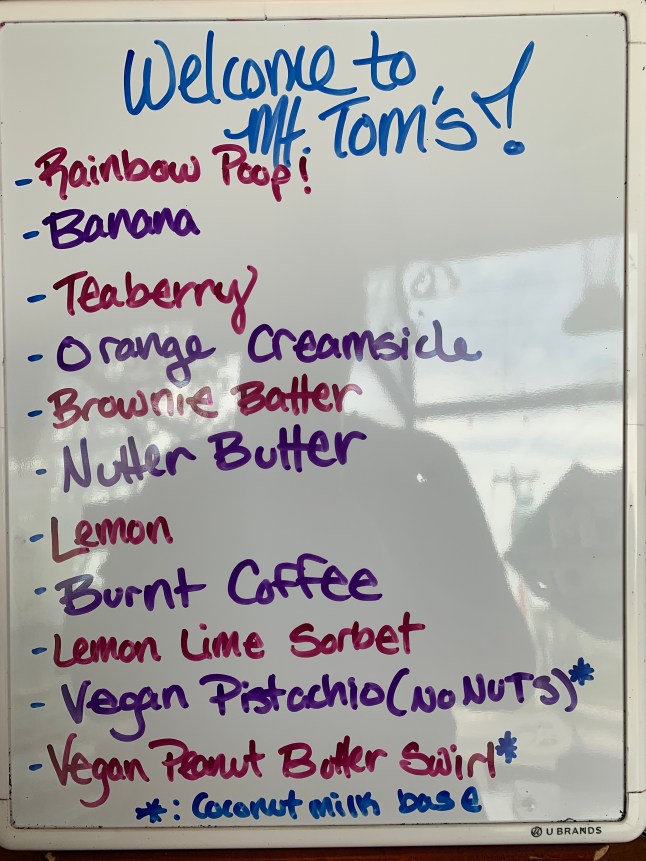 Welcome to
Mt. Tom's!
- Rainbow Poop!
- Banana
- Teaberry
- Orange Creamsicle
- Brownie Batter
- Nutter Butter
- Lemon
- Burnt Coffee
- Lemon Lime Sorbet
- Vegan Pistachio (No NUTS)*
- Vegan Peanut Butter Swirl*
*: Coconut milk base
U BRANDS